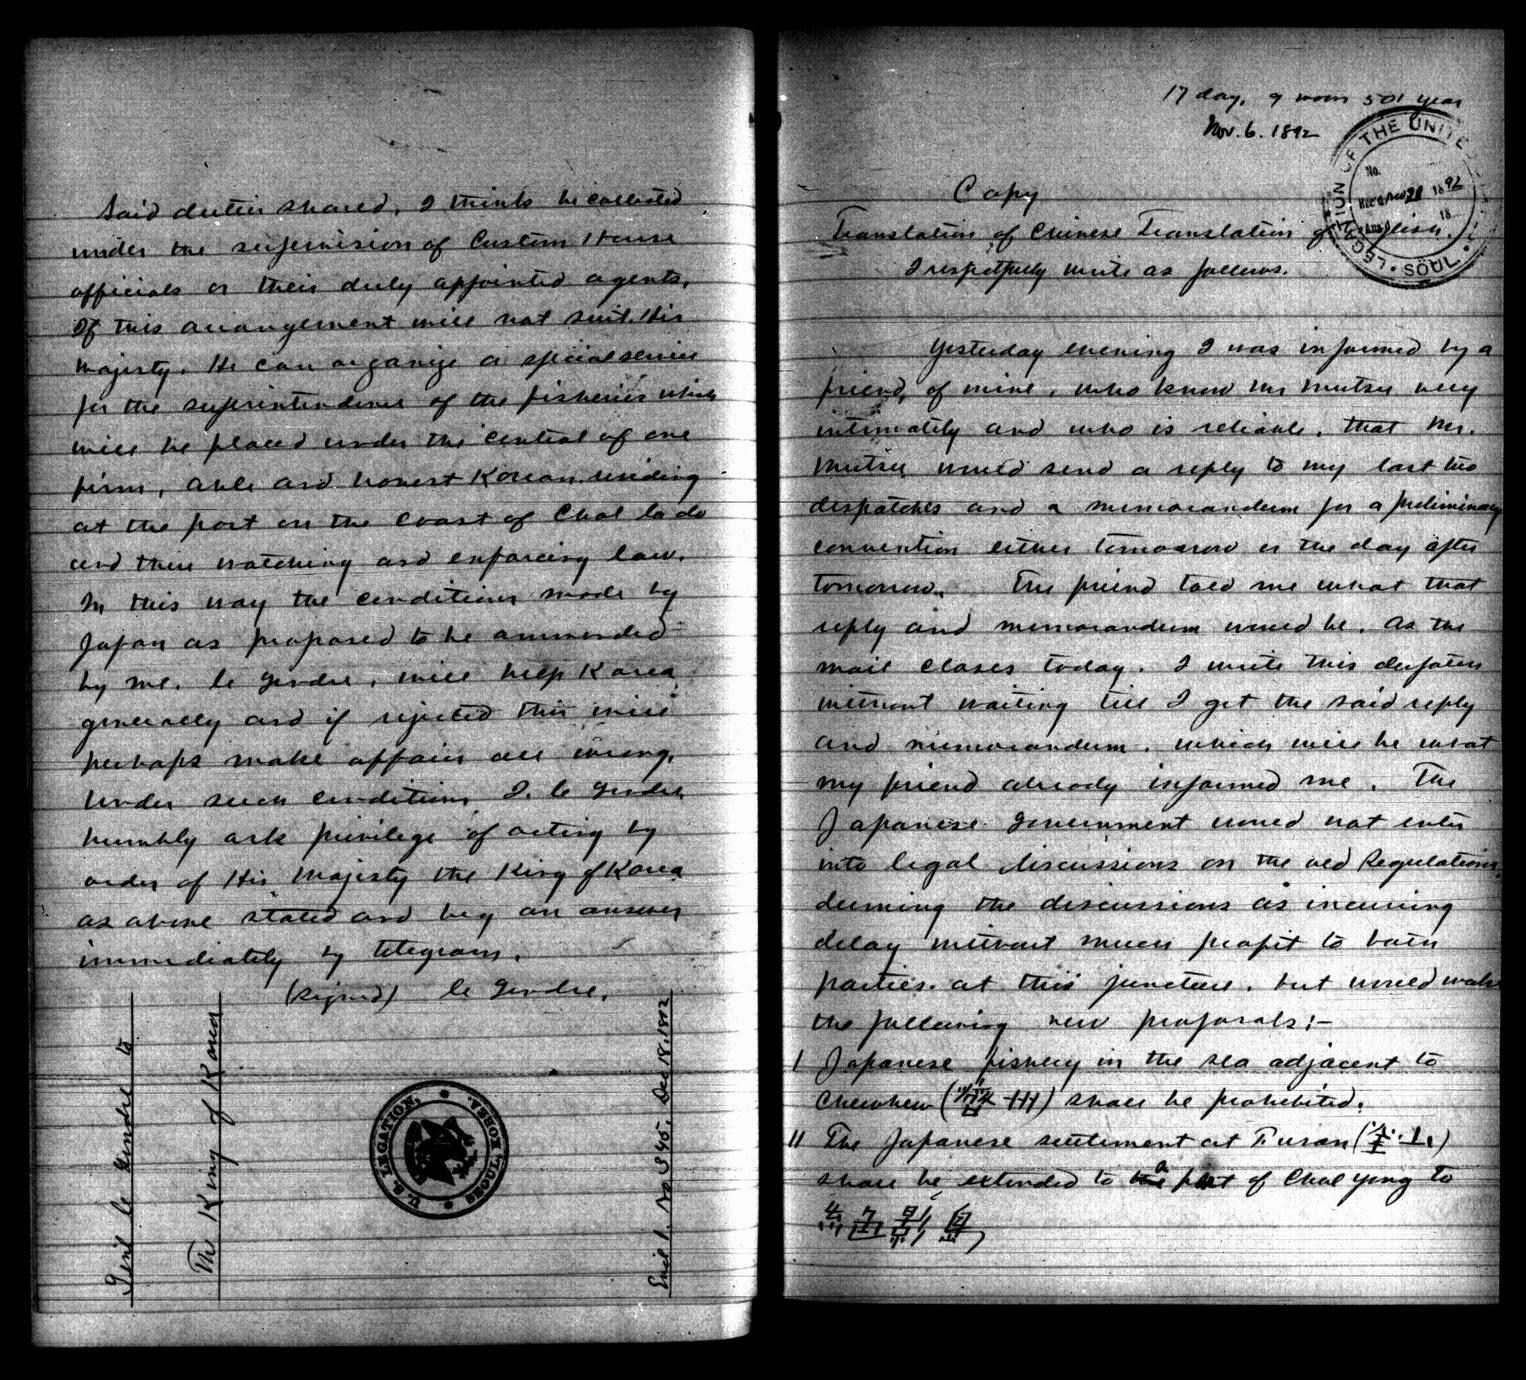 Said duties shared, I think be collected
under the supervision of Custom House
officials or their duly appointed agents.
If this arrangement will not suit His
Majesty. He can organize a special service
for the superintendence of the fisheries which
will be placed under the control of one
firm, able and honest Korean residing
at the port on the coast of Chul la do
and there watching and enforcing law.
In this way the conditions made by
Japan as proposed to be ammended
by me. le Gendre, will help Korea
generally and if rejected this will
perhaps make affairs all wrong.
Under such conditions I. le Gendre
humbly ask privilege of acting by
order of His Majesty the King of Korea
as above stated and beg an answer
immediately by telegram.
(Signed) le Gendre.
Genl le Gendre to
The King of Korea
U. S. LEGATION, SEOUL, KOREA.
Encl 1. No 345. Dec 18. 1892
17 day, 9 moon 501 year
Nov. 6. 1892
LEGATION OF THE UNITED
No.
Rec'd 1892
18
SÖUL
Copy
Translation of Chinese Translation of English.
I respectfully write as follows.
Yesterday evening I was informed by a
friend, of mine, who know Mr Mutsu very
intimately and who is reliable, that Mr.
Mutsu would send a reply to my last two
despatches and a memorandum for a preliminary
convention either tomorrow or the day after
tomorrow. The friend told me what that
reply and memorandum would be. As the
mail closes today. I write this despatch
without waiting till I get the said reply
and memorandum. which will be what
my friend already informed me. The
Japanese Government would not enter
into legal discussions on the old Regulations,
deeming the discussions as incurring
delay without much profit to both
parties. at this juncture. but would make
the following new proposals:—
I Japanese fishery in the sea adjacent to
Cheichew (濟州) shall be prohibited.
II The Japanese settlement at Fusan (釜山)
shall be extended to a part of Chul yong to